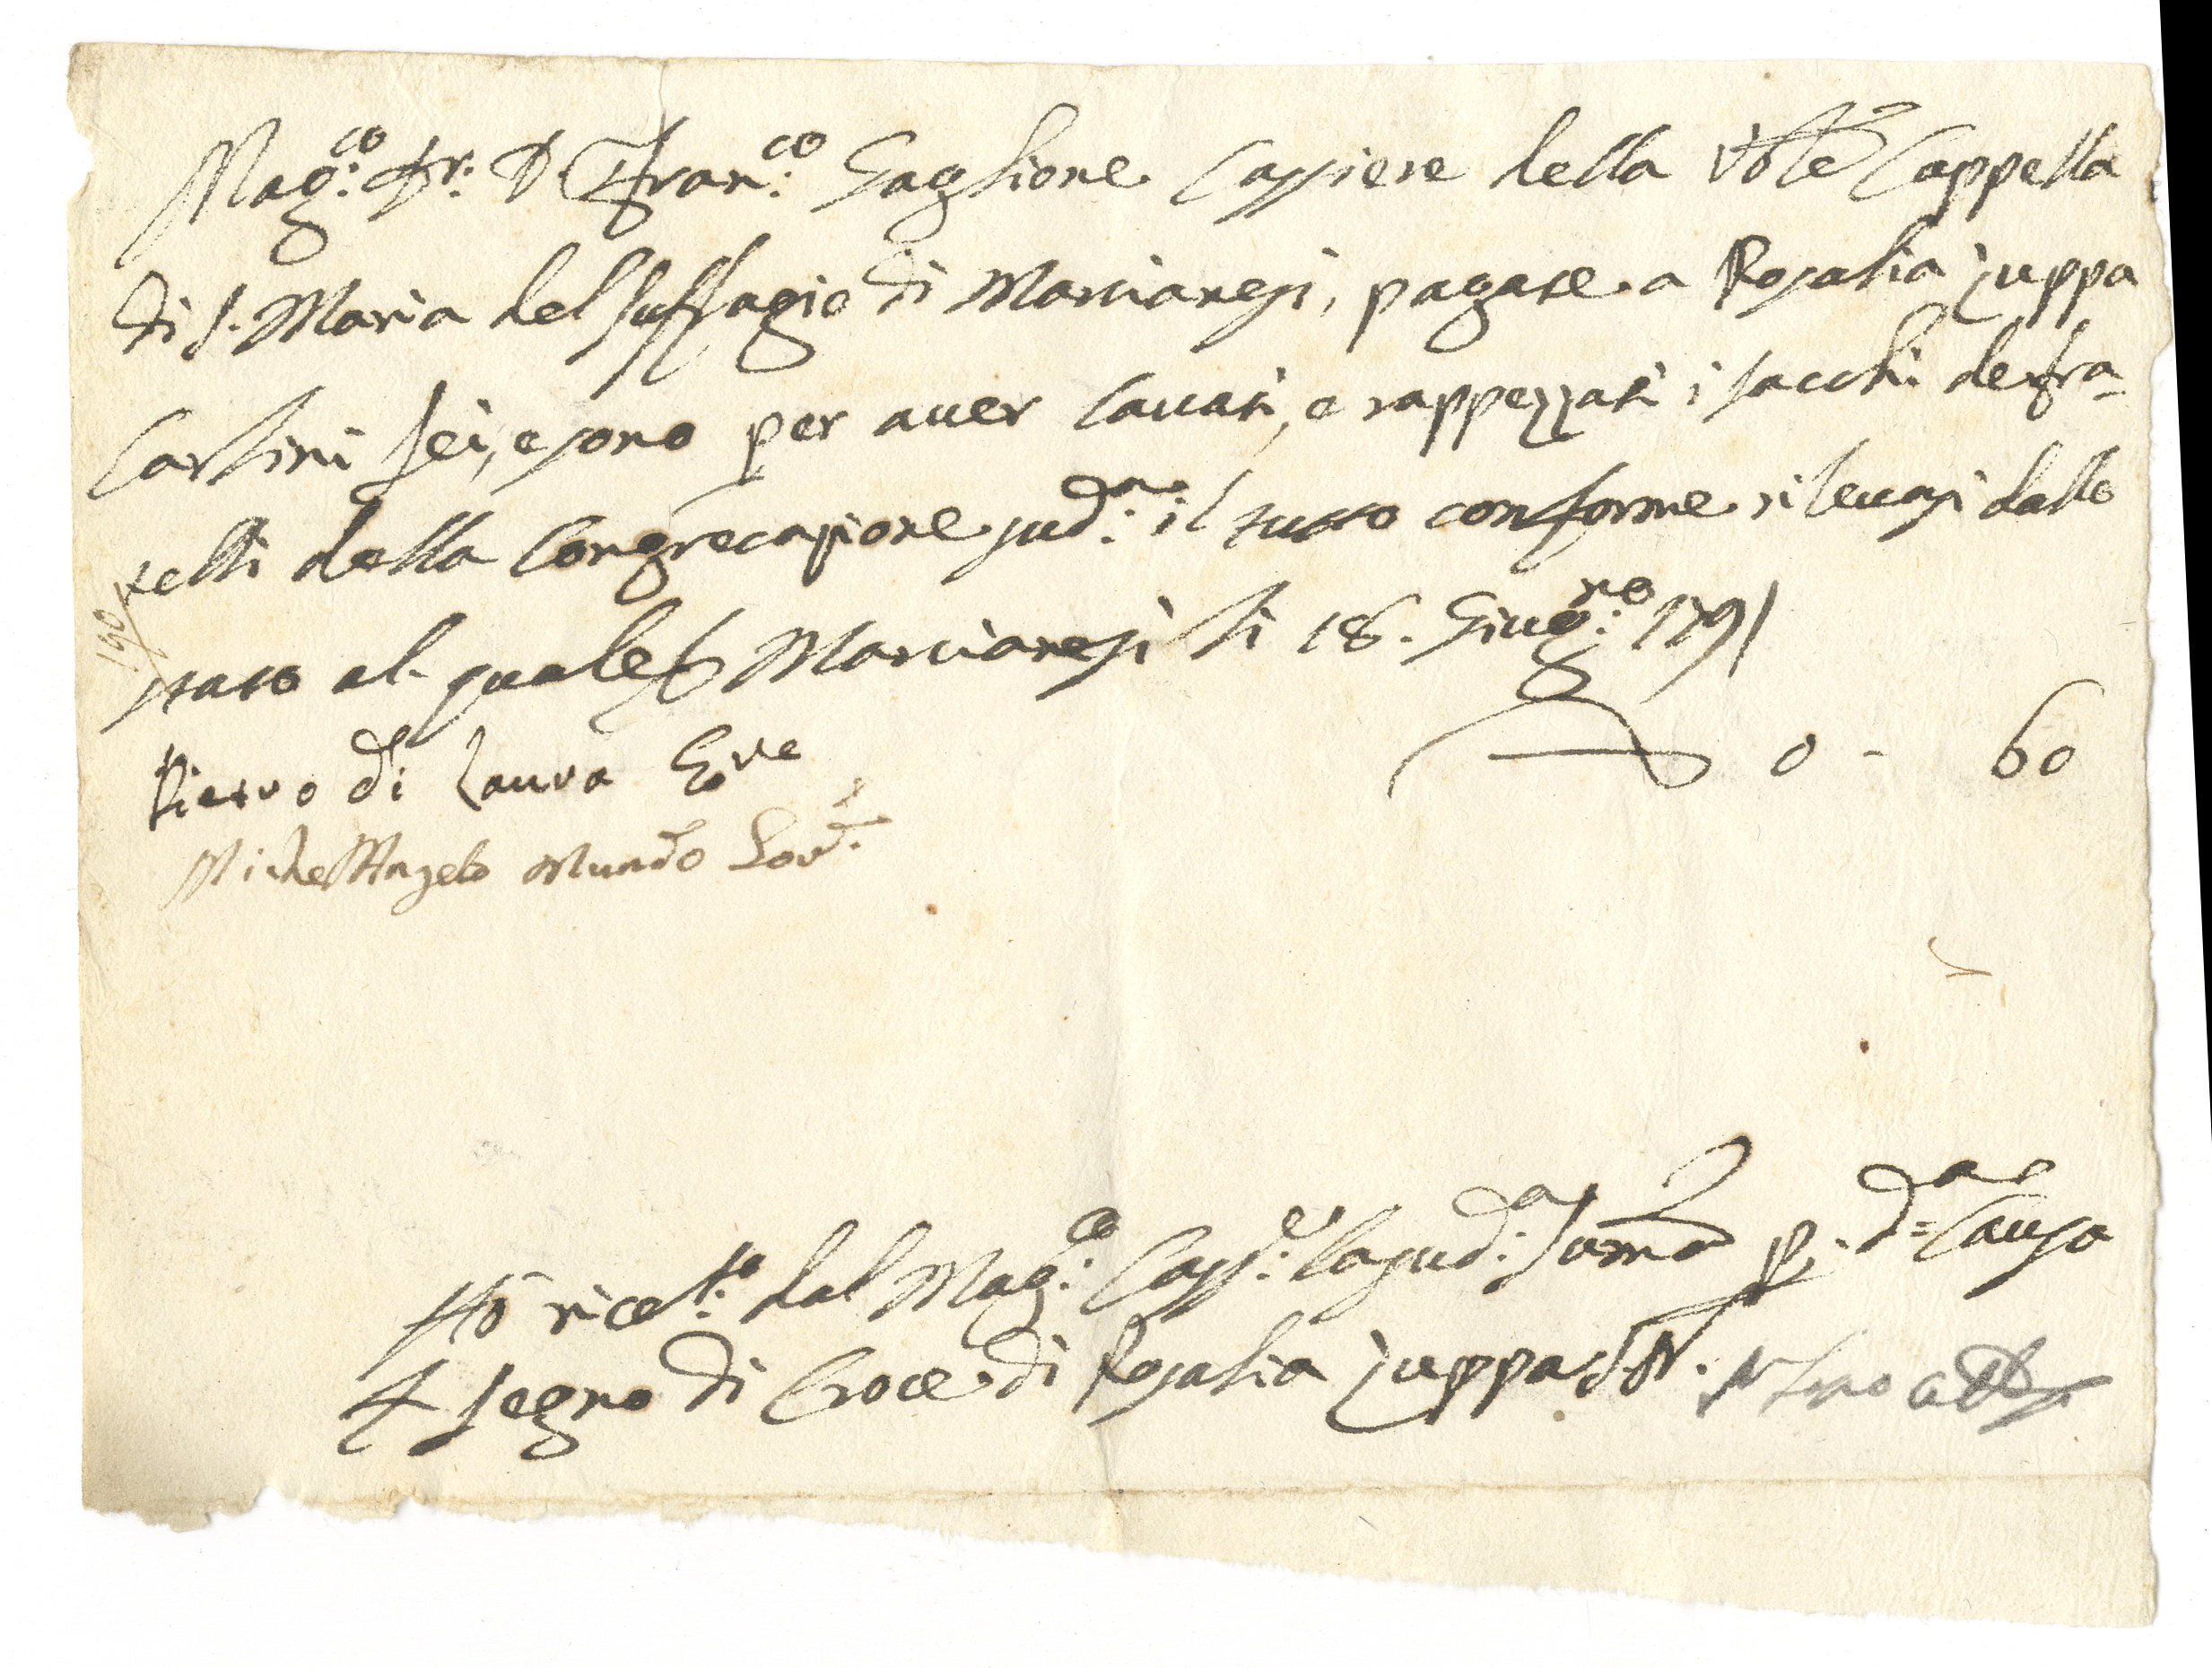 Mag:co Dr: D Fran:co Gaglione Cassiere della Vble Cappella
di S. Maria del Suffragio di Marcianesi, pagate a Rosalia Juppa
Carlini sei, e sono per aver lavati, e rappezzati i sacchi de fra-
telli della Congrecazione sud:a il tutto conforme rilevasi dallo
stato al quale Marcianesi li 18. Giug:no 1791
190
0 - 60
Pietro di Laura Gove
Michel'Angelo Mundo Gov:r
Hò ricet:to dal Mag:co Cass:e la sud:a somma p: d:a causa
+ segno di Croce di Rosalia Juppa